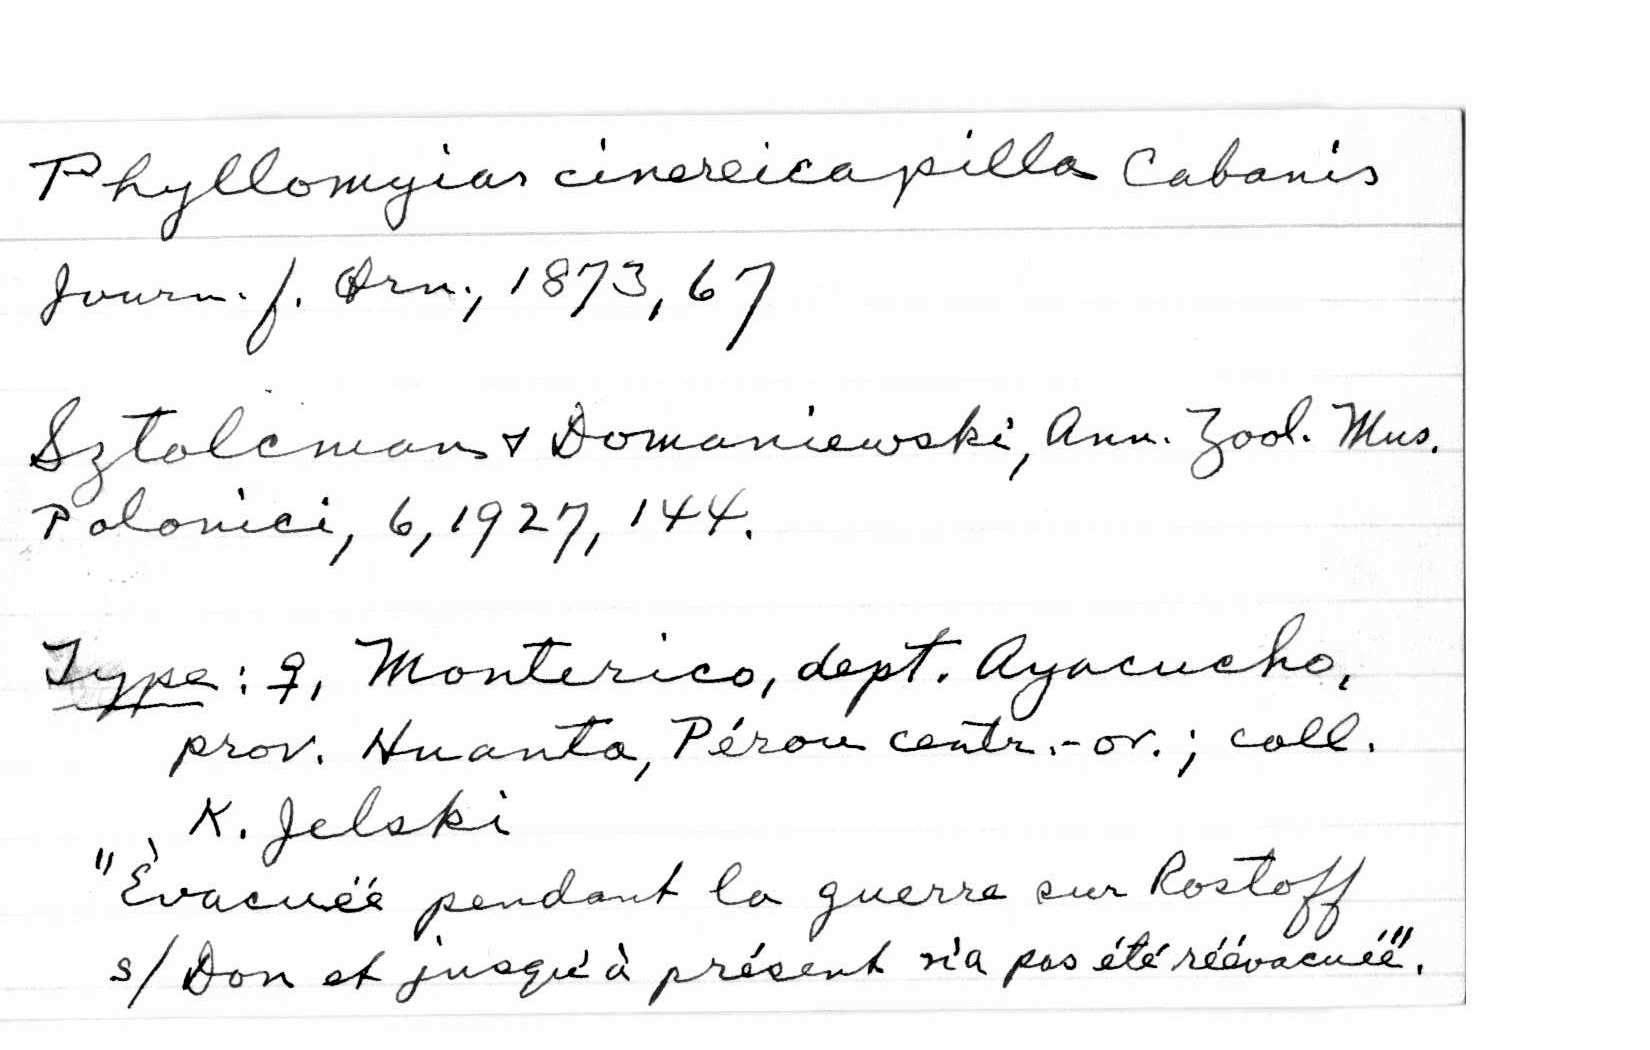 Phyllomyias cinereicapilla Cabanis
Journ. f. Orn., 1873, 67
Sztolcman & Domaniewski, Ann. Zool. Mus.
Polonici, 6, 1927, 144.
Type: ♀, Monterico, dept. Ayacucho,
prov. Huanta, Pérou centr.-or.; coll.
K. Jelski
"Èvacuéé pendant la guerre sur Rostoff
s/Don et jusqu'à présent n'a pas été réévacuéé".